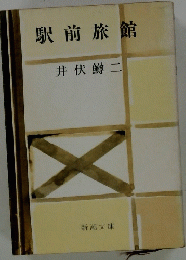 駅前旅館
井伏鱒二
新潮文庫